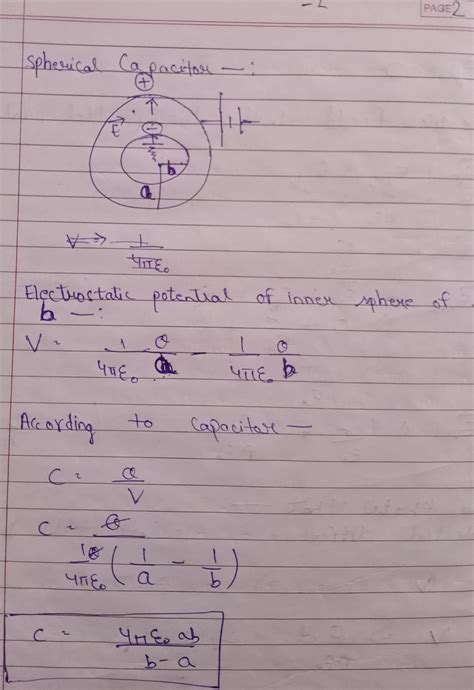 PAGE 2
Spherical Capacitor —:
+
E
−
b
a
V ⇒ 1/4πε₀
Electrostatic potential of inner sphere of
b —:
V = 1/4πε₀ Q/a − 1/4πε₀ Q/b
According to Capacitor —
C = Q/V
C = Q
1Q/4πε₀ (1/a − 1/b)
C = 4πε₀ab/b-a